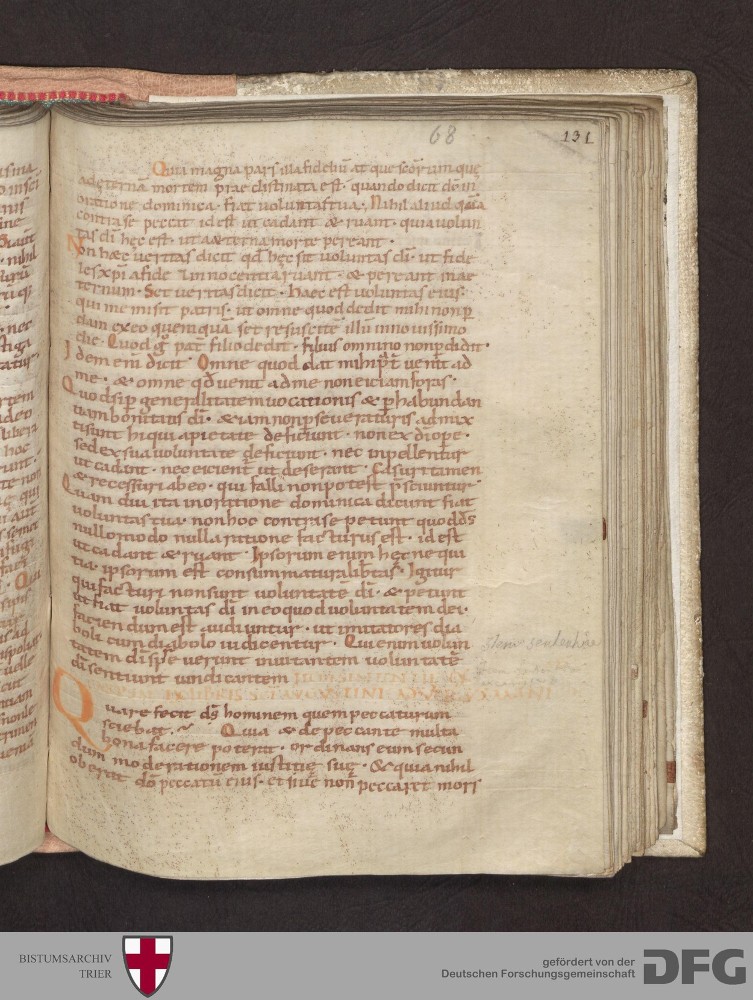 68
131
Quia magna pars illa fidelium at que scorum que
ad eterna mortem prae destinata est. quando dicit do in
oratione dominica. fiat voluntas tua. Nihil aliud quia
contra se peccit id est ut cadant & ruant. quia volun
tas di hęc est. ut aeterna morte pereant.
Non haec veritas dicit qd hęc sit voluntas di. ut fide
les xpi a fide innocentia ruant. & pereant in ae
ternum. Set veritas dicit. haec est voluntas eius.
qui me misit patris. ut omne quod dedit mihi non p
dam ex eo quemquā set resuscitē illū in novissimo
die. Quod g pat filio dedit. filius omnino non p didit.
Idem eni dicit Omne quod dat mihi venit ad
me. & omne qd venit ad me non eiciam foras.
Quod sip generalitatem vocationis & p habundan
tiam bonitatis di. & iam non pseveraturis admix
ti sunt hi qui a pietate deficiunt. non ex di ope.
sed ex sua voluntate deficiunt. nec inpelluntur
ut cadant. nec eicientur ut deserant. Casuri tamen
& recessuri ab eo. qui falli non potest psciuntur
Quam diu ita in oratione dominica dicunt fiat
voluntas tua. non hoc contra se petunt quod ds
nullomodo nulla ratione facturus est. id est
ut cadant & ruant. Ipsorum enim hęc nequi
tia ipsorum est consummatura libtas. Igitur
qui facturi non sunt voluntatē di. & petunt
ut fiat voluntas di in eo quod voluntatem dei.
faciendum est audiuntur. ut imitatores dia
boli cum diabolo iudicentur. Qui enim volun
tatem di spreverunt invitantem voluntatē
di sentiunt vindicantem
Quare fecit ds hominem quem peccaturum
sciebat. Quia & de peccante multa
bona facere poterit. ordinans eum secun
dum moderationem iustitię suę. & quia nihil
oberat do peccatū eius. et sive non peccaret mors
BISTUMSARCHIV
TRIER
gefördert von der
Deutschen Forschungsgemeinschaft
DFG